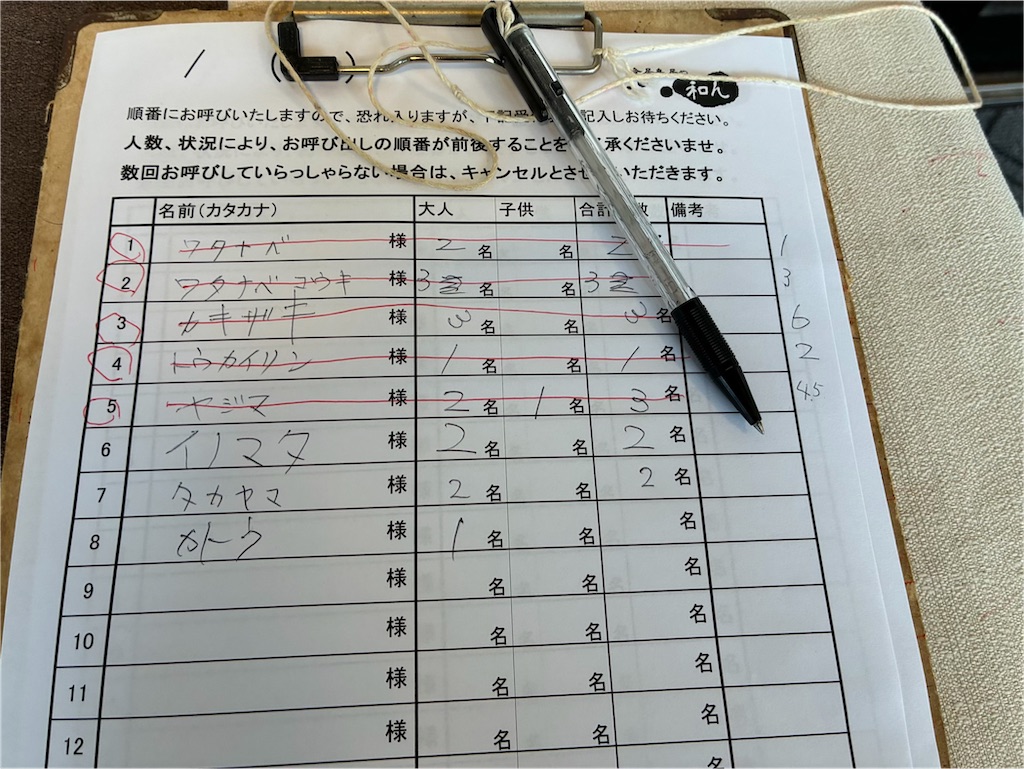 / ( )
和ん
順番にお呼びいたしますので、恐れ入りますが、下記 記入しお待ちください。
人数、状況により、お呼び出しの順番が前後することを 承くださいませ。
数回お呼びしていらっしゃらない場合は、キャンセルとさせ いただきます。
名前(カタカナ) 大人 子供 合計 数 備考
1 ワタナベ 様 2 名 名 2 1
2 ワタナベ コウキ 様 3 名 名 3 3
3 カキザキ 様 3 名 名 3 名 6
4 トウカイリン 様 1 名 名 1 名 2
5 ヤジマ 様 2 名 1 名 3 名 45
6 イノマタ 様 2 名 名 2 名
7 タカヤマ 様 2 名 名 2 名
8 カトウ 様 1 名 名 名
9 様 名 名 名
10 様 名 名 名
11 様 名 名 名
12 様 名 名 名
名